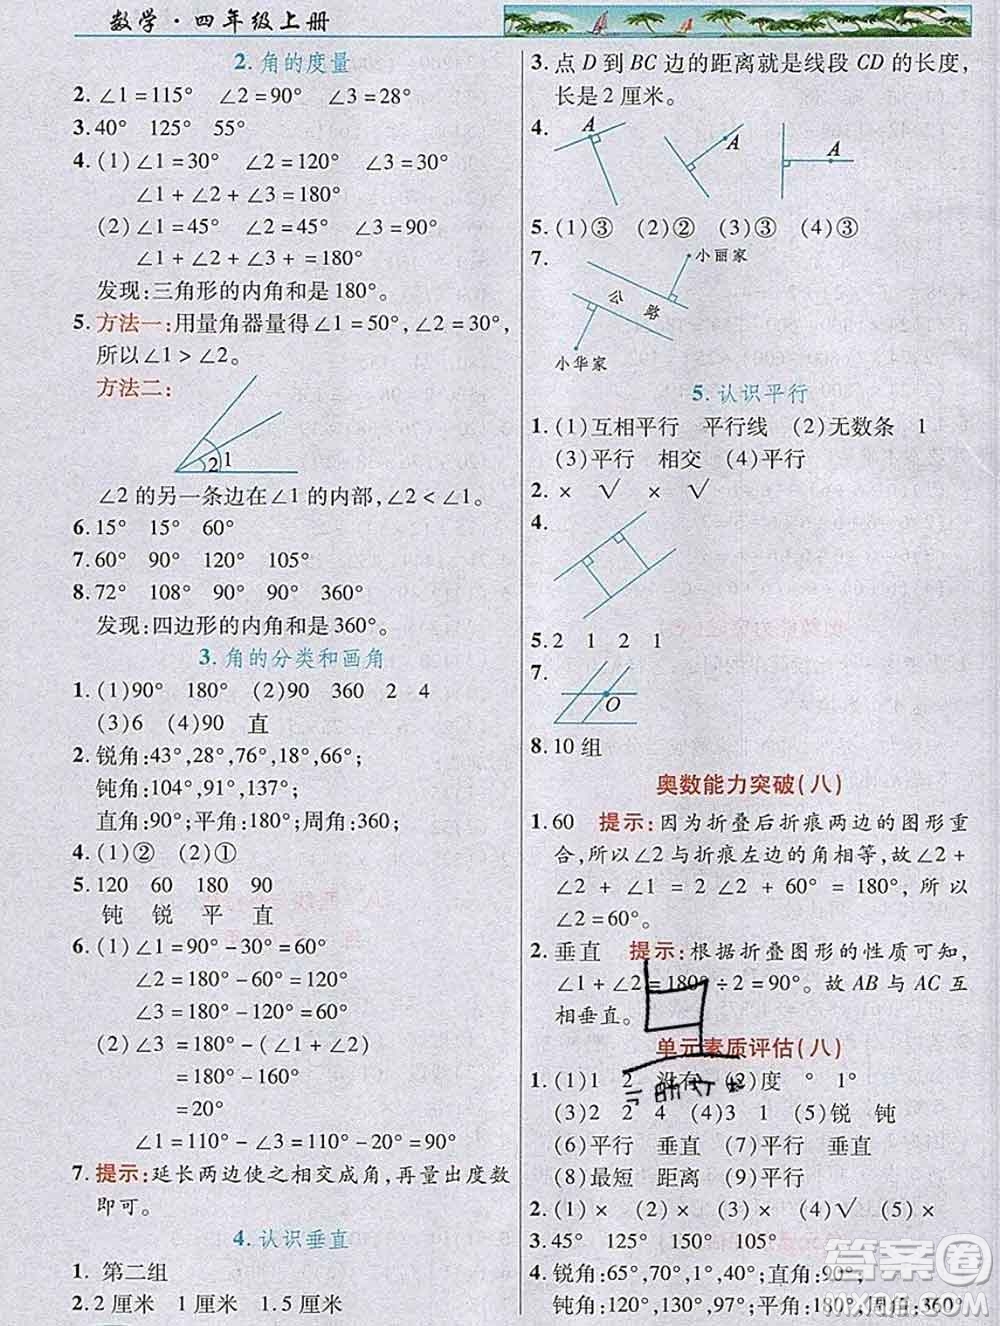 数学·四年级上册
2. 角的度量
2. ∠1=115° ∠2=90° ∠3=28°
3. 40° 125° 55°
4. (1) ∠1=30° ∠2=120° ∠3=30°
∠1+∠2+∠3=180°
(2) ∠1=45° ∠2=90° ∠3=45°
∠1+∠2+∠3+=180°
发现:三角形的内角和是180°。
5. 方法一:用量角器量得∠1=50°,∠2=30°,
所以∠1>∠2。
方法二:
2 1
∠2的另一条边在∠1的内部,∠2<∠1。
6. 15° 15° 60°
7. 60° 90° 120° 105°
8. 72° 108° 90° 90° 360°
发现:四边形的内角和是360°。
3. 角的分类和画角
1. (1)90° 180° (2)90 360 2 4
(3)6 (4)90 直
2. 锐角:43°,28°,76°,18°,66°;
钝角:104°,91°,137°;
直角:90°;平角:180°;周角:360°。
4. (1)② (2)①
5. 120 60 180 90
钝 锐 平 直
6. (1) ∠1=90°-30°=60°
∠2=180°-60°=120°
∠3=180°-120°=60°
(2) ∠3=180°-(∠1+∠2)
=180°-160°
=20°
∠1=110°-∠3=110°-20°=90°
7. 提示:延长两边使之相交成角,再量出度数
即可。
4. 认识垂直
1. 第二组
2. 2厘米 1厘米 1.5厘米
3. 点D到BC边的距离就是线段CD的长度,
长是2厘米。
4. A A A
5. (1)③ (2)② (3)③ (4)③
7. 小丽家
公路
小华家
5. 认识平行
1. (1)互相平行 平行线 (2)无数条 1
(3)平行 相交 (4)平行
2. × √ × √
4.
5. 2 1 2 1
7. O
8. 10组
奥数能力突破(八)
1. 60 提示:因为折叠后折痕两边的图形重
合,所以∠2与折痕左边的角相等,故∠2+
∠2+60°=180°,所以
∠2=60°。
2. 垂直 提示:根据折叠图形的性质可知,
∠1+∠2=180°÷2=90°。故AB与AC互
相垂直。
单元素质评估(八)
1. (1)1 2 没有 (2)度 ° 1°
(3)2 2 4 (4)3 1 (5)锐 钝
(6)平行 垂直 (7)平行 垂直
(8)最短 距离 (9)平行
2. (1)× (2)× (3)× (4)√ (5)×
3. 45° 125° 150° 105°
4. 锐角:65°,70°,1°,21°;直角:90°;
钝角:120°,97°,110°;平角:180°;周角:360°
答案圈
MXQE.COM